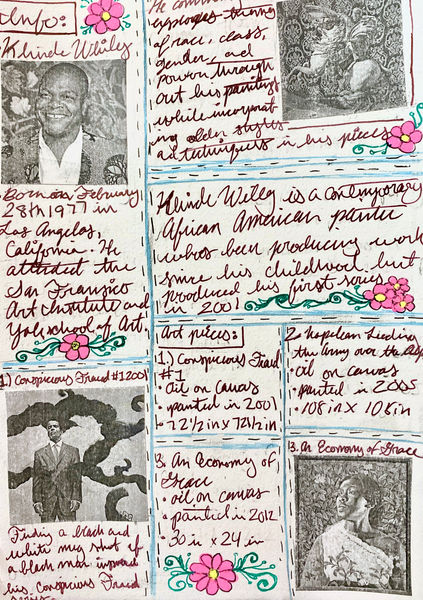 Info:
Khinde Wiley
Born on February
28th 1977 in
Los Angelos,
California. He
attended the
San Franzico
Art Institute and
Yale school of Art.
He comm
explores themes
of race, class,
gender, and
power through
out his paintings
while incorporat
ing older styles
and techniques in his pieces
Khinde Willey is a contemporary
African American painter
whos been producing work
since his childhood but
produced his first series
in 2001
Art pieces:
1.) Conspicious Fraud
#1
• Oil on canvas
• painted in 2001
• 72 1/2 in x 72 1/2 in
2. Napolean Leading
the Army over the Alps
• oil on canvas
• painted in 2005
• 108 in X 108 in
3. An Economy of
Grace
• oil on canvas
• painted in 2012
• 30 in x 24 in
3. An Economy of Grace
1.) Conspicious Fraud #1 2001
Finding a black and
white mug shot of
a black man inspired
his, Conspicious Fraud
series